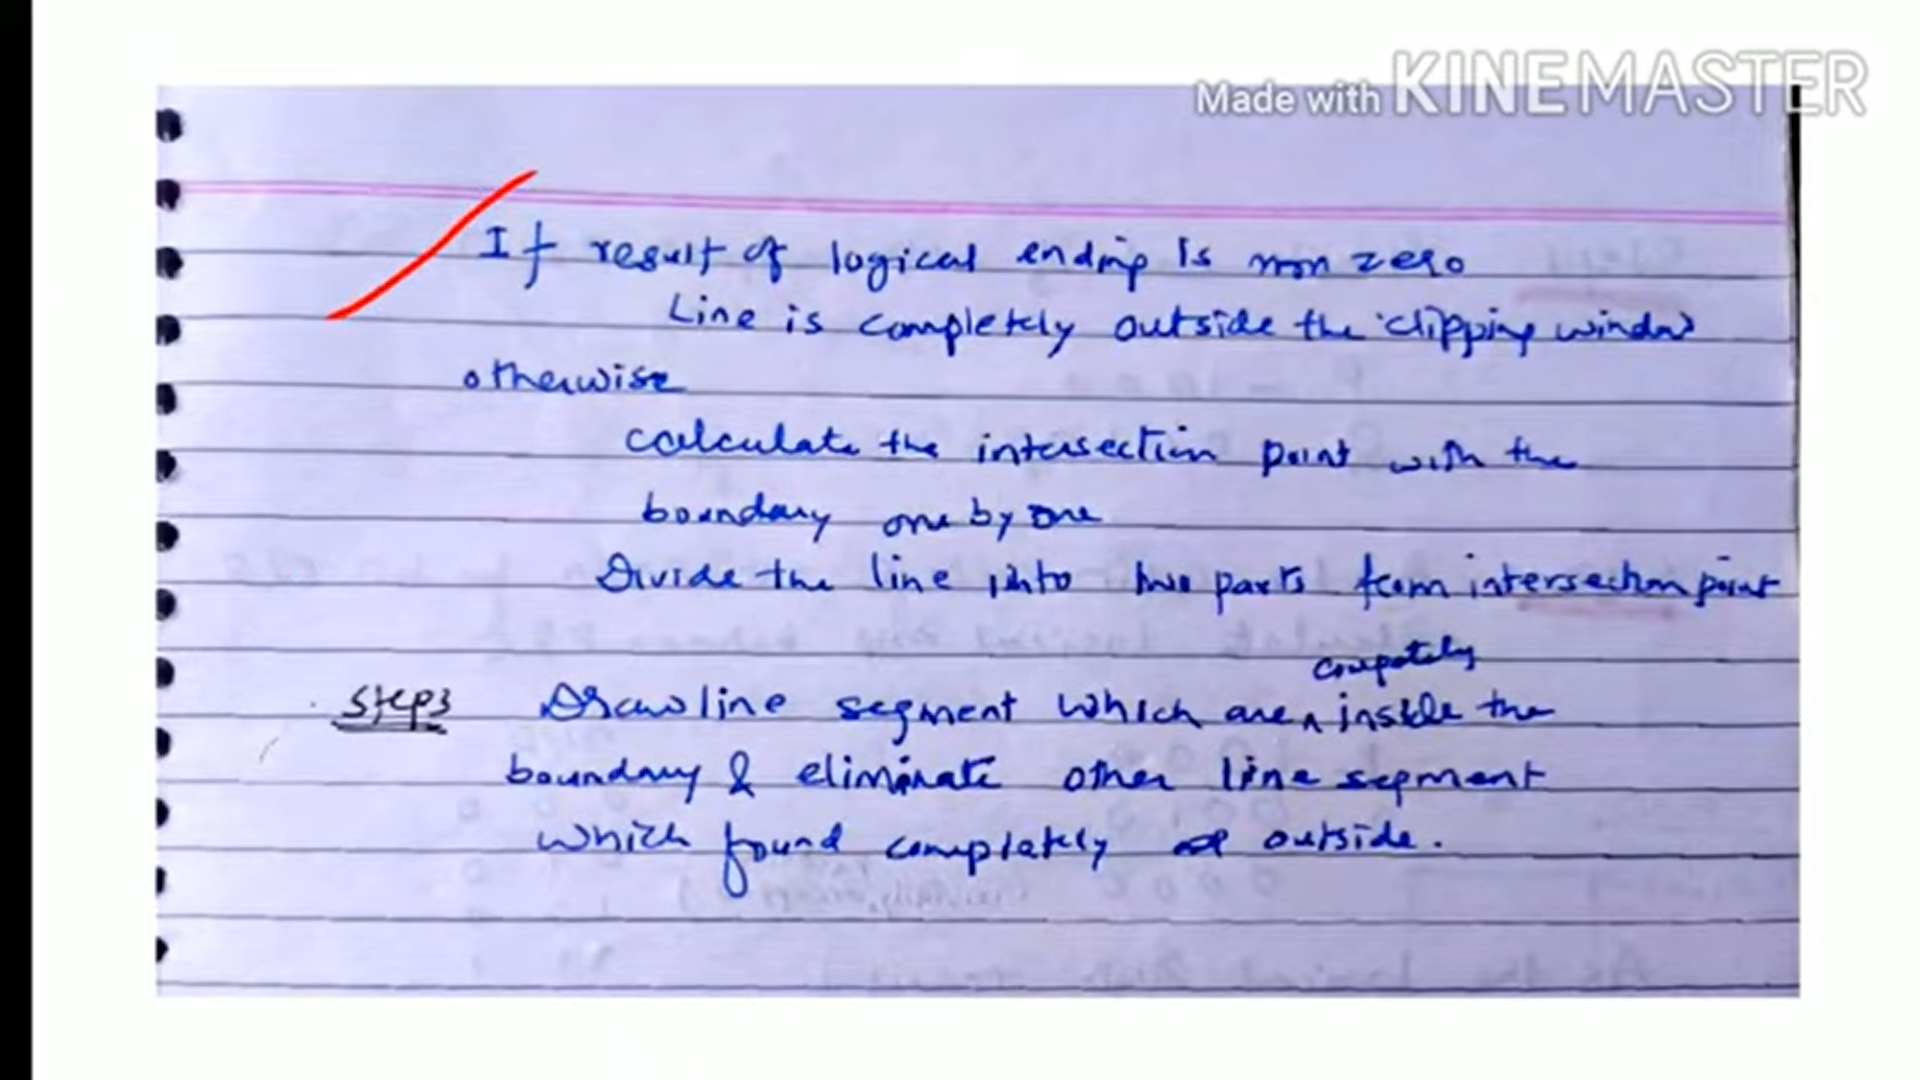 Made with KINEMASTER
If result of logical ending is non zero
Line is completely outside the clipping window
otherwise
calculate the intersection point with the
boundary one by one
Divide the line into two parts from intersection point
completely
Step3 Draw line segment which are ^ inside the
boundary & eliminate other line segment
which found completely outside.